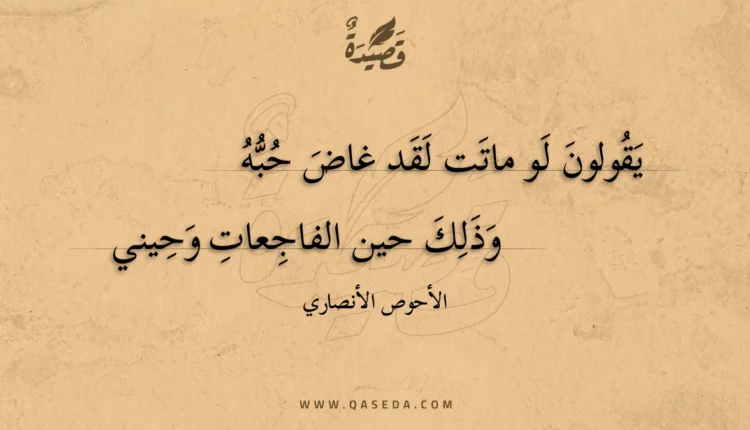 قَصِيْدَةٌ
يَقُولونَ لَو ماتَت لَقَد غاضَ حُبُّهُ
وَذَلِكَ حين الفاجِعاتِ وَحِيني
الأحوص الأنصاري
WWW.QASEDA.COM